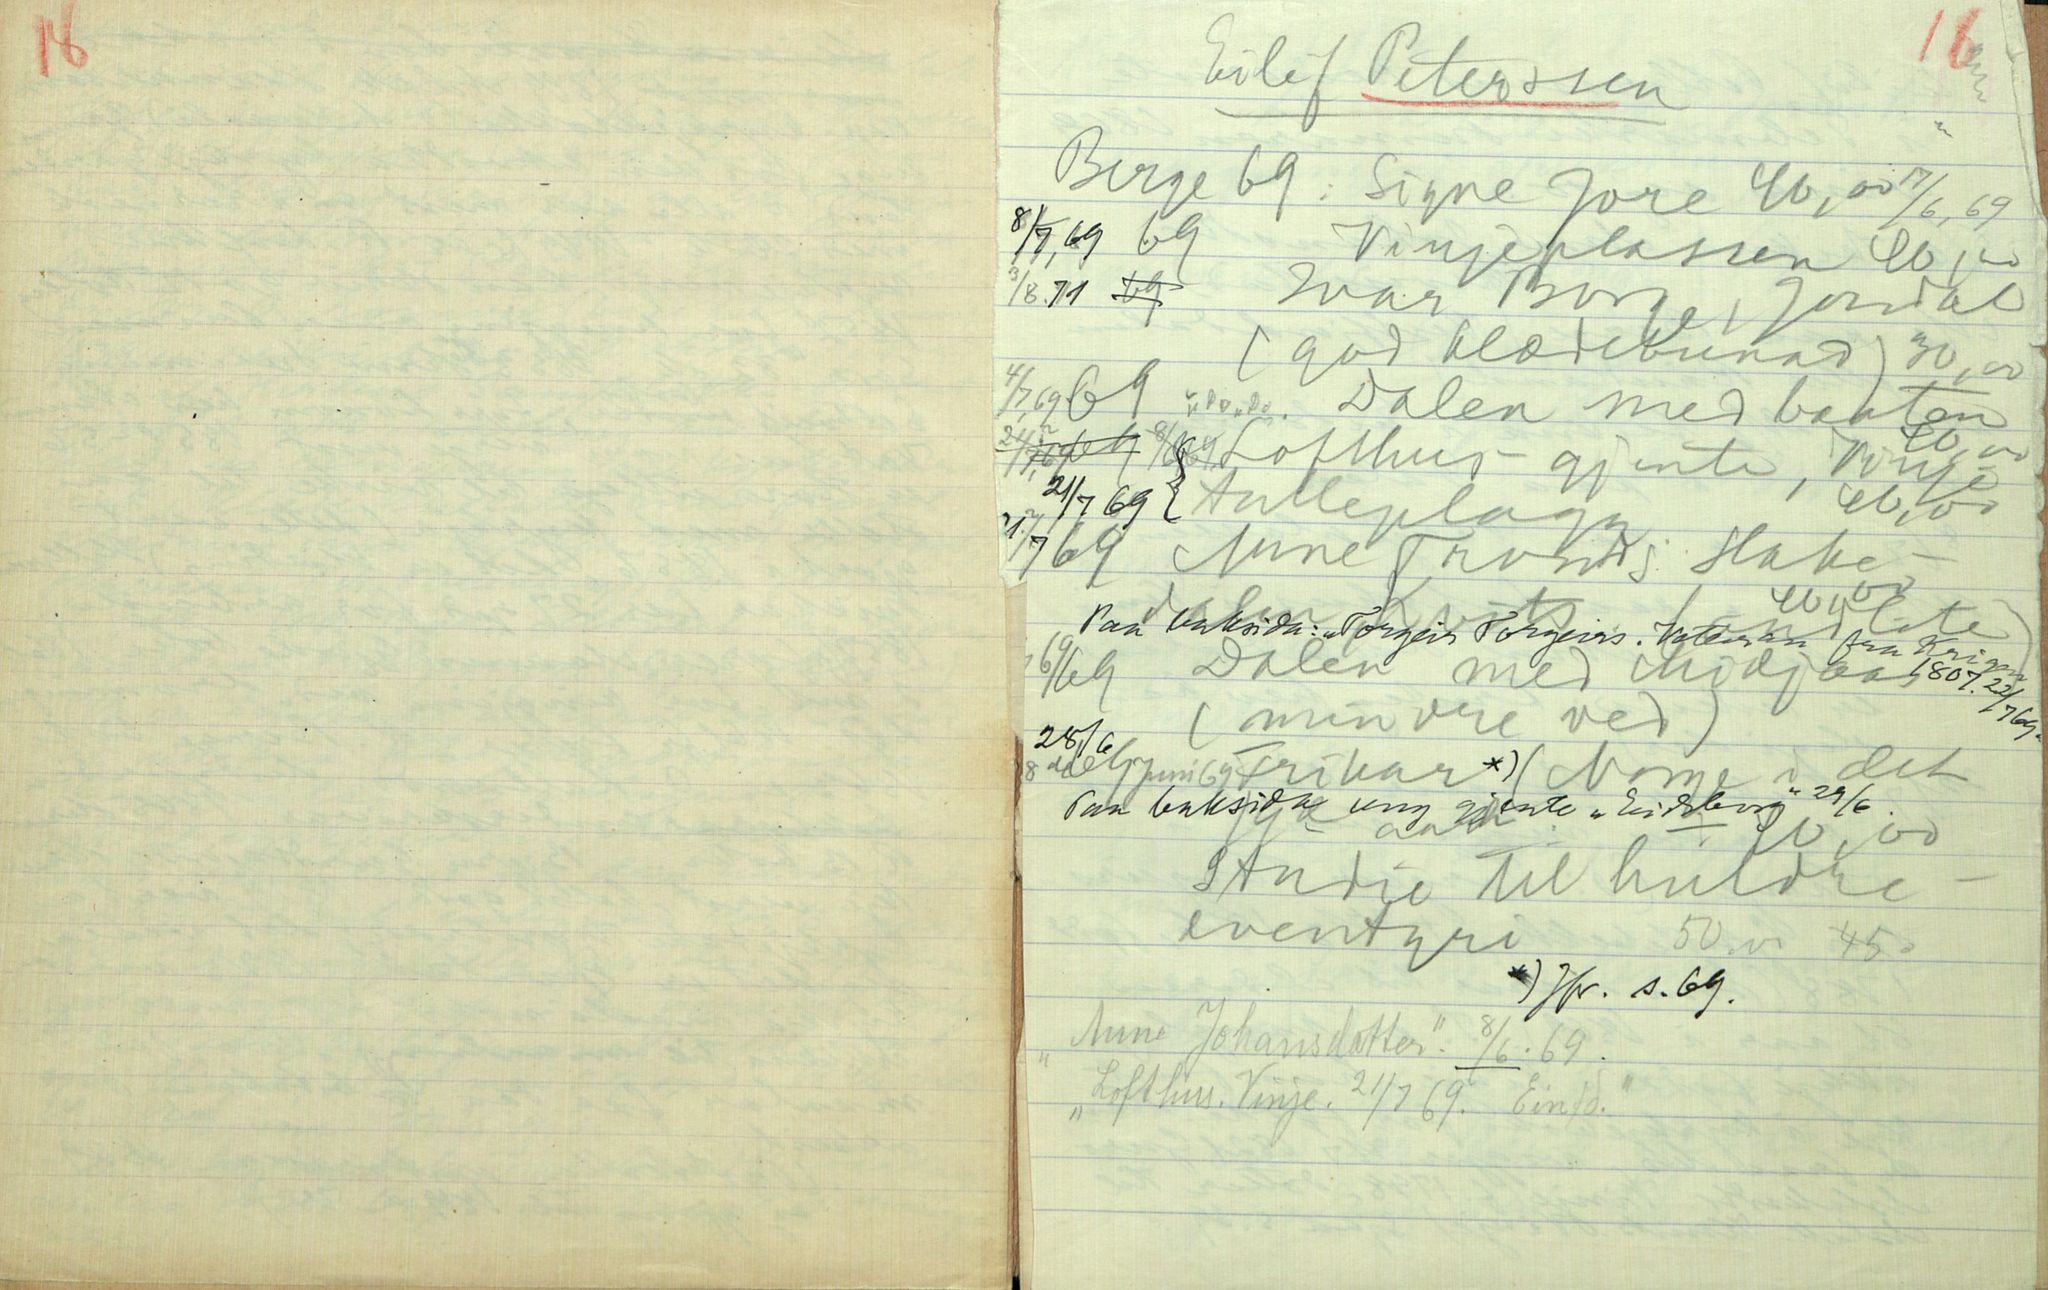 16
16
Eilif Peterssen
Berge 69: Signe Jore 40,00 17/6, 69
8/7, 69 69 Vinjeplassen 40,00
3/8. 71 69 Ivar Borge, Jondal
(god klædebunad) 30,00
4/7, 69 69 Dalen med bautan
40,00
8/6 69. Lofthus-gjente, Vinje
21/7 69 Tulleplagg 40,00
21/7 69 Anne Tronds. Hake-
40,00
Paa baksida: "Torgeir Torgeirs. Veteran fra Krigen 1807. 22/7 69."
69 Dalen med Midjaas
(mindre ved)
28/6
juni 69 Frikar *) (Norge i det
Paa baksida ung gjente "Eidsborg" 29/6.
50,00
Studie til huldre-
eventyri 50.00 45.
*) Jfr. s. 69.
"Anne Johansdotter". 8/6. 69.
"Lofthus. Vinje. 21/7 69. Einfd."